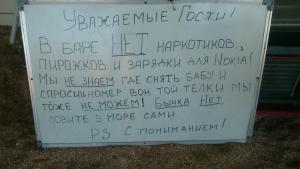 Уважаемые Гости!
В баре НЕТ наркотиков,
пирожков и зарядки для Nokia!
Мы не знаем где снять бабу и
спросить номер вон той телки мы
тоже не можем! Бычка Нет,
ловите в море сами
P.S С пониманием!